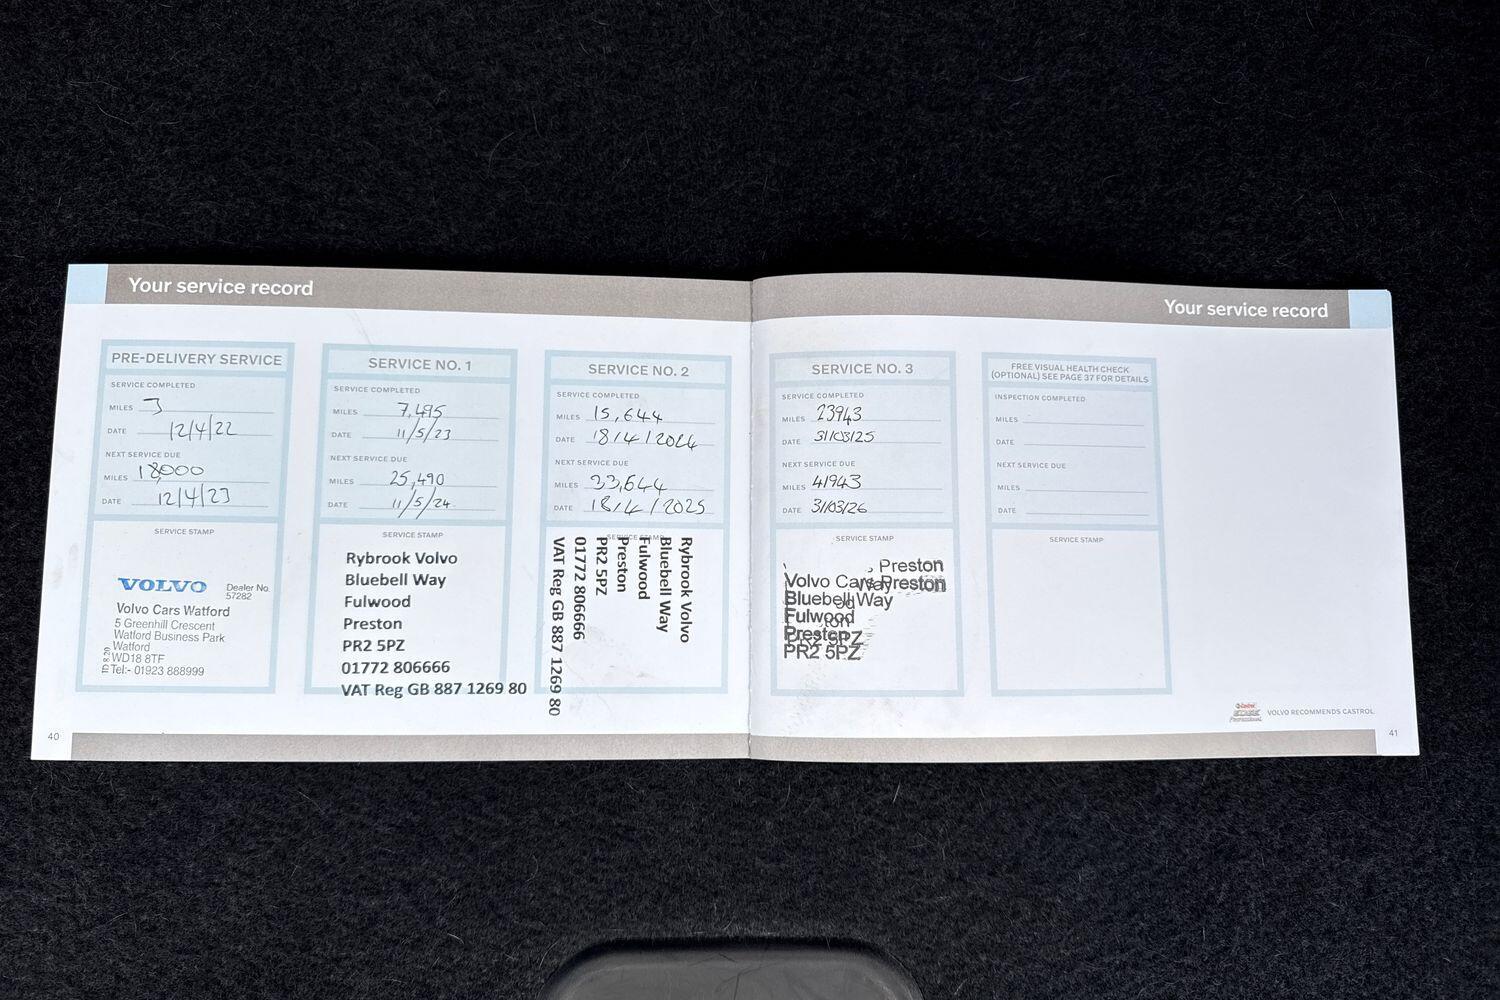 Your service record
PRE-DELIVERY SERVICE
SERVICE COMPLETED
MILES 3
DATE 12/4/22
NEXT SERVICE DUE
MILES 18000
DATE 12/4/23
SERVICE STAMP
VOLVO
Dealer No.
57282
Volvo Cars Watford
5 Greenhill Crescent
Watford Business Park
Watford
WD18 8TF
Tel:- 01923 888999
SERVICE NO. 1
SERVICE COMPLETED
MILES 7,495
DATE 11/5/23
NEXT SERVICE DUE
MILES 25,490
DATE 11/5/24
SERVICE STAMP
Rybrook Volvo
Bluebell Way
Fulwood
Preston
PR2 5PZ
01772 806666
VAT Reg GB 887 1269 80
SERVICE NO. 2
SERVICE COMPLETED
MILES 15,644
DATE 18/4/2024
NEXT SERVICE DUE
MILES 33,644
DATE 18/4/2025
SERVICE STAMP
Rybrook Volvo
Bluebell Way
Fulwood
Preston
PR2 5PZ
01772 806666
VAT Reg GB 887 1269 80
40
Your service record
SERVICE NO. 3
SERVICE COMPLETED
MILES 23943
DATE 31/03/25
NEXT SERVICE DUE
MILES 41943
DATE 31/03/26
SERVICE STAMP
Preston
Volvo Cars Preston
Bluebell Way
Fulwood
Preston
PR2 5PZ
FREE VISUAL HEALTH CHECK
(OPTIONAL) SEE PAGE 37 FOR DETAILS
INSPECTION COMPLETED
MILES
DATE
NEXT SERVICE DUE
MILES
DATE
SERVICE STAMP
Castrol
EDGE
Professional
VOLVO RECOMMENDS CASTROL
41